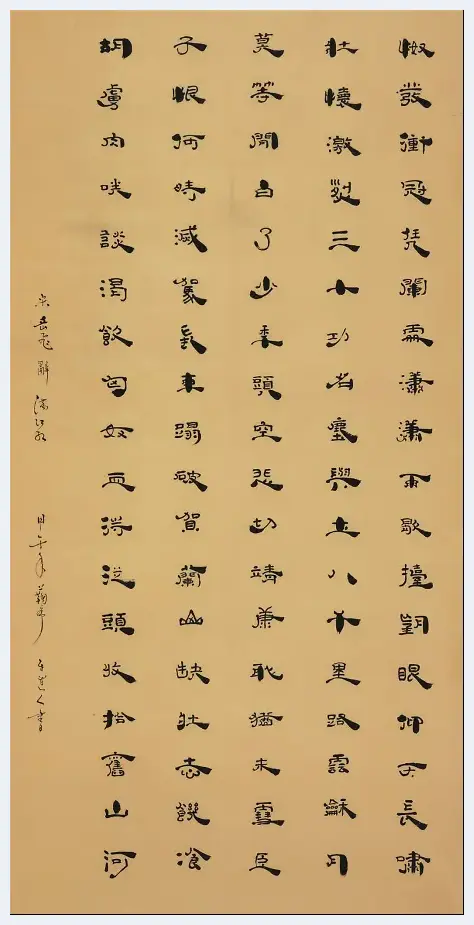 怒發衝冠凭闌處瀟瀟雨歇擡望眼仰天長嘯
壯懷激烈三十功名塵與土八千里路雲龢月
莫等閒白了少年頭空悲切靖康恥猶未雪臣
子恨何時滅駕長車蹋破賀蘭山缺壯志饑飡
胡虜肉咲談渴飲匈奴血待從頭收拾舊山河
宋岳飛辭滿江紅
甲午年 道人書